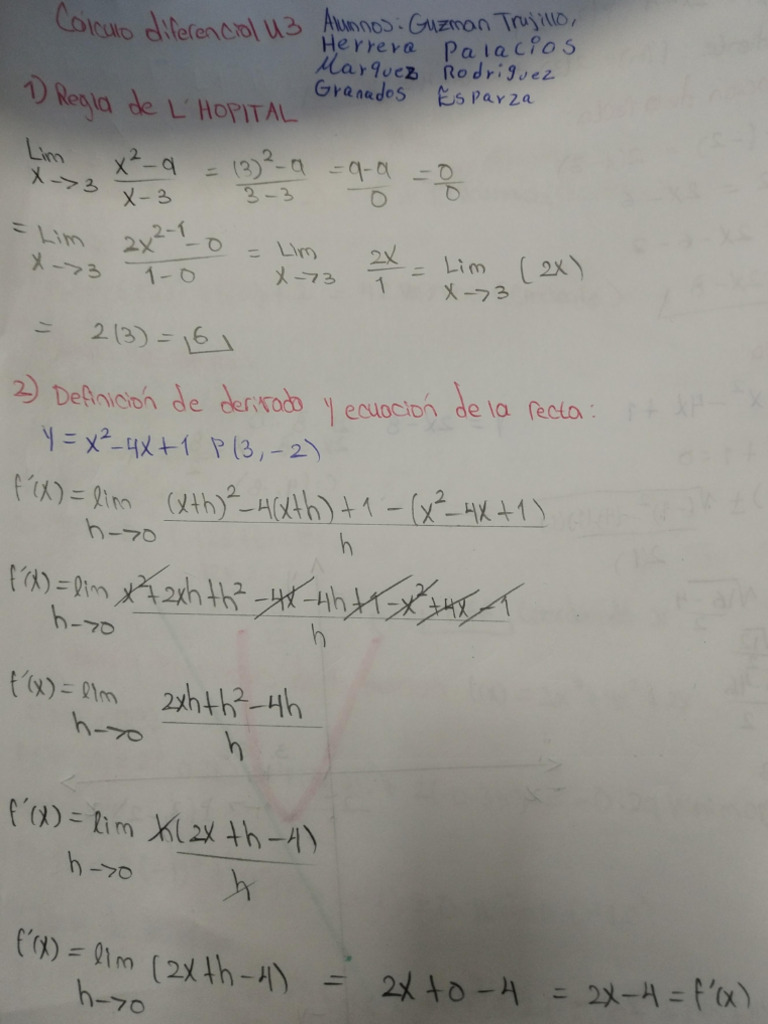 Cálculo diferencial U3
Alumnos: Guzman Trujillo,
Herrera Palacios
Marquez Rodriguez
Granados Esparza
1) Regla de L'HOPITAL
Lim x->3 (x²-9)/(x-3) = ((3)²-9)/(3-3) = (9-9)/0 = 0/0
= Lim x->3 (2x²⁻¹-0)/(1-0) = Lim x->3 2x/1 = Lim x->3 (2x)
= 2(3) = 6
2) Definición de derivada y ecuación de la recta:
y = x²-4x+1 P(3,-2)
f'(x) = lim h->0 ((x+h)²-4(x+h)+1-(x²-4x+1))/h
f'(x) = lim h->0 (x²+2xh+h²-4x-4h+1-x²+4x-1)/h
f'(x) = lim h->0 (2xh+h²-4h)/h
f'(x) = lim h->0 h(2x+h-4)/h
f'(x) = lim h->0 (2x+h-4) = 2x+0-4 = 2x-4 = f'(x)